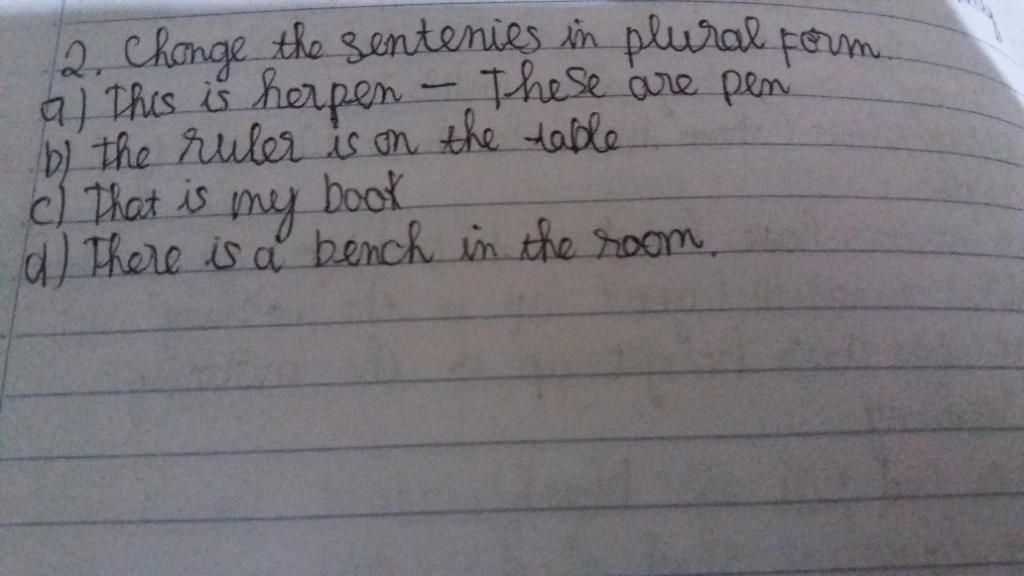 2. Change the sentenies in plural form.
a) This is her pen - These are pen
b) The ruler is on the table
c) That is my book
d) There is a bench in the room.